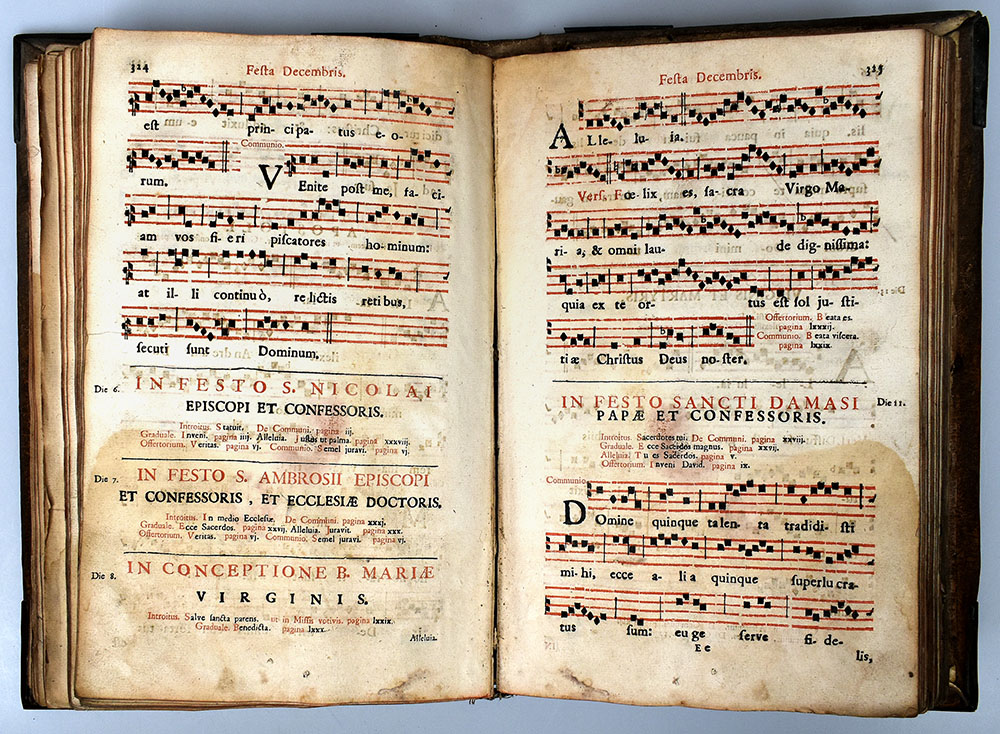 324
Festa Decembris.
est princi pa- tus e-o-
Communio.
rum. VEnite post me, fa ci-
am vos fi-e ri piscatores ho-minum:
at il-li continuò, re lictis reti bus,
secuti sunt Dominum.
Die 6. IN FESTO S. NICOLAI
EPISCOPI ET CONFESSORIS.
Introitus. Statuit. De Communi. pagina iij.
Graduale. Inveni. pagina iiij. Alleluia. Justus ut palma. pagina xxxviij.
Offertorium. Veritas. pagina vj. Communio. Semel juravi. pagina vj.
Die 7. IN FESTO S. AMBROSII EPISCOPI
ET CONFESSORIS, ET ECCLESIÆ DOCTORIS.
Introitus. In medio Ecclesiæ. De Communi. pagina xxxj.
Graduale. Ecce Sacerdos. pagina xxvij. Alleluia. Juravit. pagina xxx.
Offertorium. Veritas. pagina vj. Communio. Semel juravi. pagina vj.
Die 8. IN CONCEPTIONE B. MARIÆ
VIRGINIS.
Introitus. Salve sancta parens. ut in Missis votivis. pagina lxxix.
Graduale. Benedicta. pagina lxxx.
Alleluia.
Festa Decembris. 325
ALle- lu- ia.
Vers. Fœ lix es, sa cra Virgo Ma-
ri- a, & omni lau- de dig-nissima:
quia ex te or- tus est sol ju sti-
Offertorium. Beata es.
pagina lxxxij.
Communio. Beata viscera.
pagina lxxix.
tiæ Christus Deus no-ster.
IN FESTO SANCTI DAMASI Die 11.
PAPÆ ET CONFESSORIS.
Introitus. Sacerdotes tui. De Communi. pagina xxviij.
Graduale. Ecce Sacerdos magnus. pagina xxvij.
Alleluia. Tu es Sacerdos. pagina v.
Offertorium. Inveni David. pagina ix.
Communio.
DOmine quinque ta len- ta tradidi- sti
mi-hi, ecce a- li a quinque superlu cra-
tus sum: eu ge serve fi- de-
E e
lis,